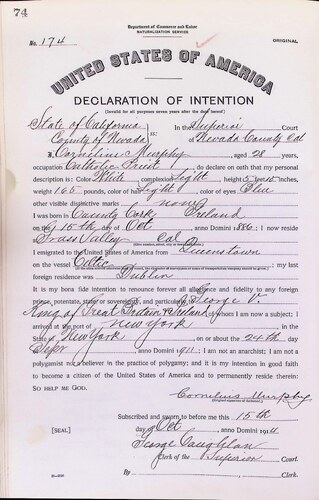 74
Department of Commerce and Labor
NATURALIZATION SERVICE
No. 174
ORIGINAL
UNITED STATES OF AMERICA
DECLARATION OF INTENTION
(Invalid for all purposes seven years after the date hereof)
State of California
County of Nevada
ss:
In the Superior Court
of Nevada County Cal
I, Cornelius Murphy, aged 28 years,
occupation Catholic Priest, do declare on oath that my personal
description is: Color White, complexion Light, height 5 feet 10 inches,
weight 165 pounds, color of hair Light, color of eyes Blue
other visible distinctive marks none
I was born in County Cork, Ireland
on the 15th day of Oct, anno Domini 1886; I now reside
at Grass Valley Cal
I emigrated to the United States of America from Queenstown
on the vessel Celtic; my last
foreign residence was Dublin
It is my bona fide intention to renounce forever all allegiance and fidelity to any foreign
prince, potentate, state, or sovereignty, and particularly to George V
King of Great Britain & Ireland, of whom I am now a subject; I
arrived at the port of New York, in the
State of New York, on or about the 24th day
of Sepr, anno Domini 1911; I am not an anarchist; I am not a
polygamist nor a believer in the practice of polygamy; and it is my intention in good faith
to become a citizen of the United States of America and to permanently reside therein:
SO HELP ME GOD.
Cornelius Murphy
Subscribed and sworn to before me this 15th
[SEAL]
day of Oct, anno Domini 1914
George Caughlan
Clerk of the Superior Court.
By, Clerk.